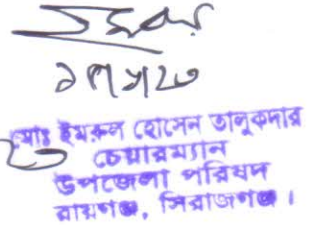 মোঃ ইমরুল হোসেন তালুকদার
চেয়ারম্যান
উপজেলা পরিষদ
রায়গঞ্জ, সিরাজগঞ্জ।